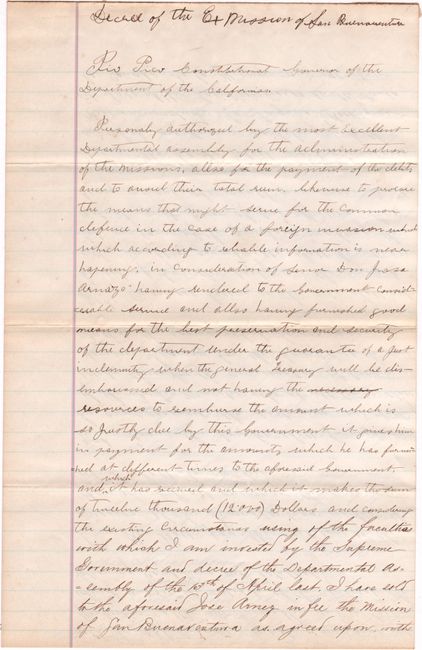 Decree of the Ex Mission of San Buenaventura
Pio Pico Constitutional Governor of the
Department of the Californias.
Personaly authorized by the most Excellent
Departmental assembly for the administration
of the missions, also for the payment of the debts
and to avoid their total ruin. likewise to procure
the means that might serve for the common
defence in the case of a foreign invasion which
which according to reliable information is near
hapening; in consideration of Senor Don Jose
Arnaz: having rendered to the Government consid-
erable service and allso having furnished good
means for the best preservation and security
of the department under the guarante of a just
indemnity when the general treasury will be dis-
embarassed and not having the necessary
resources to reimburse the amount which is
so justly due by this Government it gives him
in payment for the amounts which he has furni-
shed at different times to the aforesaid Government.
and which it has recived and which it makes the sum
of twelve thousand (12000) Dollars and considering
the existing circumstances using of the faculties
with which I am invested by the Supreme
Government and decree of the Departmental As-
=sembly of the of April last. I have sold
to the aforesaid Jose Arnez in fee the Mission
of San Buenaventura as agreed upon, with